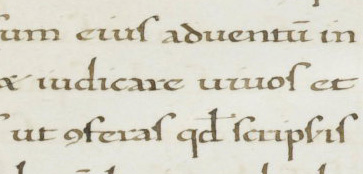 um eius aduentū in
iudicare uiuos et
ut ꝯferas qd̄ scripsis